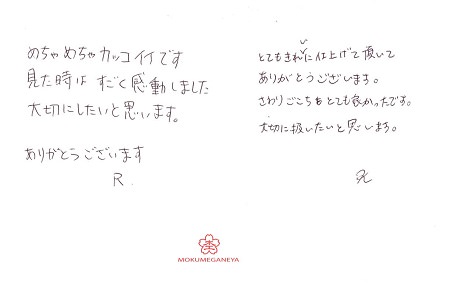 めちゃめちゃカッコイイです
見た時はすごく感動しました
大切にしたいと思います。
ありがとうございます
R.
とてもきれいに仕上げて頂いて
ありがとうございます。
さわりごこちもとても良かったです。
大切に扱いたいと思います。
MOKUMEGANEYA